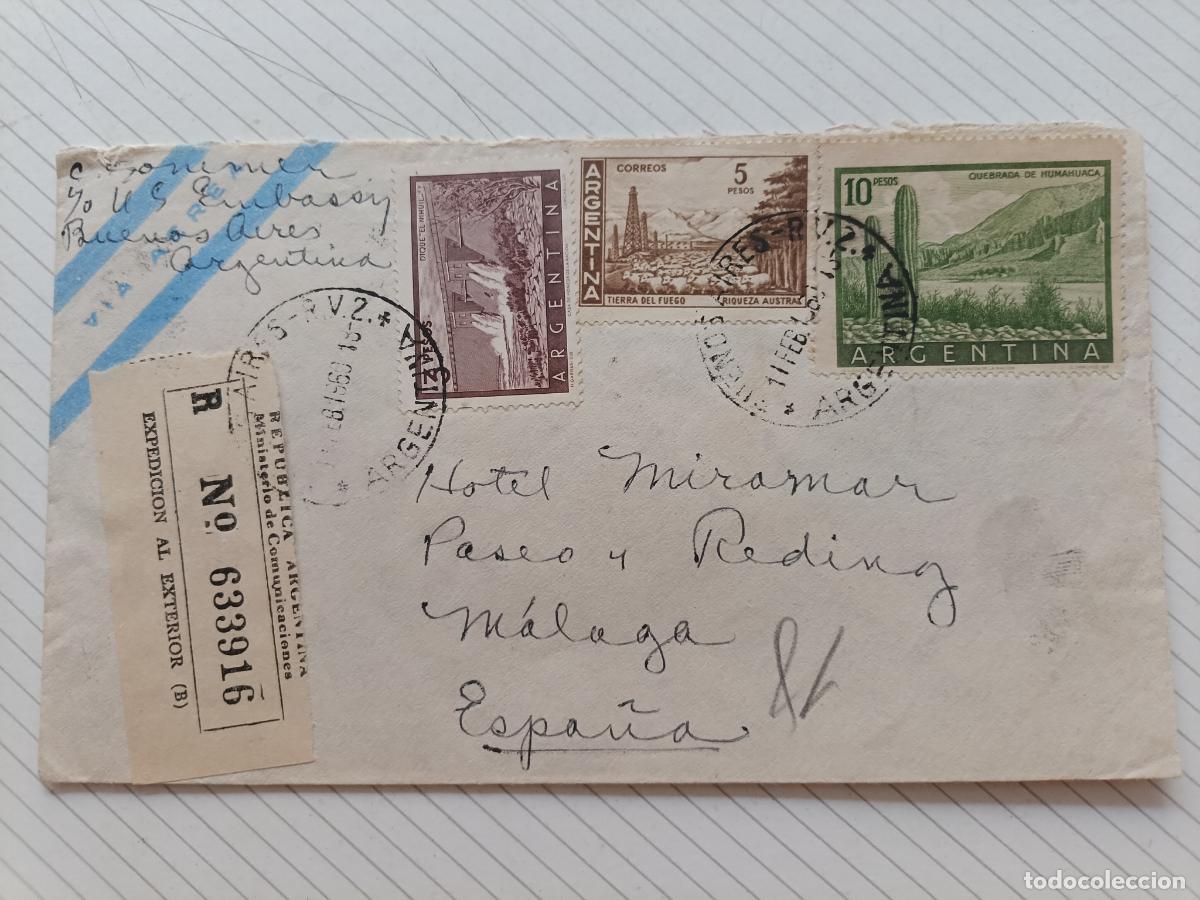 C Sommer
c/o U S Embassy
Buenos Aires
Argentina
VIA AEREA
DIQUE "EL NIHUIL"
3 PESOS
ARGENTINA
CORREOS
5
PESOS
ARGENTINA
TIERRA DEL FUEGO
RIQUEZA AUSTRAL
10 PESOS
QUEBRADA DE HUMAHUACA
ARGENTINA
AIRES-R.V.Z.*
FEB.1960 15
* ARGENTINA
BUENOS AIRES-R.V.Z.*
11 FEB.196
* ARGENTINA
REPUBLICA ARGENTINA
Ministerio de Comunicaciones
R
No 633916
EXPEDICION AL EXTERIOR (B)
Hotel Miramar
Paseo y Reding
Málaga
España
todocoleccion